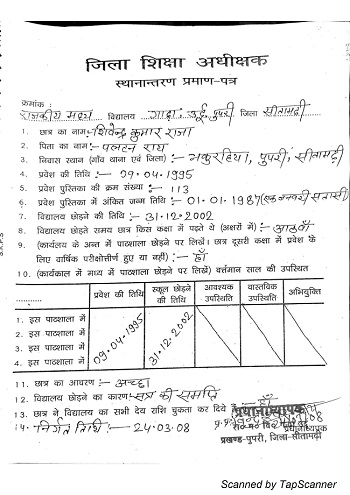 जिला शिक्षा अधीक्षक
स्थानान्तरण प्रमाण-पत्र
क्रमांक :
राजकीय मध्य विद्यालय पुपरी जिला सीतामढ़ी
1. छात्र का नाम:- शिवेन्द्र कुमार राजा
2. पिता का नाम:- पलटन राय
3. निवास स्थान (गाँव थाना एवं जिला) :- पुपरी, सीतामढ़ी
4. प्रवेश की तिथि :- 09.04.1995
5. प्रवेश पुस्तिका की क्रम संख्या :- 113
6. प्रवेश पुस्तिका में अंकित जन्म तिथि :- 01.01.1987 (एक जनवरी सतासी)
7. विद्यालय छोड़ने की तिथि :- 31.12.2002
8. विद्यालय छोड़ते समय छात्र किस कक्षा में पढ़ते थे (अक्षरों में) :- आठवाँ
9. (कार्यालय के अन्त में पाठशाला छोड़ने पर लिखें। छात्र दूसरी कक्षा में प्रवेश के
लिए वार्षिक परीक्षोत्तीर्ण हुए या नहीं) :- हाँ
10. (कार्यकाल में मध्य में पाठशाला छोड़ने पर लिखें) वर्त्तमान साल की उपस्थित
प्रवेश की तिथि स्कूल छोड़ने की तिथि आवश्यक उपस्थिति वास्तविक उपस्थिति अभियुक्ति
1. इस पाठशाला में
2. इस पाठशाला में
3. इस पाठशाला में
4. इस पाठशाला में
09.04.1995 31.12.2002
11. छात्र का आचरण :- अच्छा
12. विद्यालय छोड़ने का कारण:- सत्र की समाप्ति
13. छात्र ने विद्यालय का सभी देय राशि चुकता कर दिये हैं :- हाँ
14. निर्गत तिथि :- 24.03.08
प्रधानाध्यापक
प्रधानाध्यापक
प्रखण्ड-पुपरी, जिला-सीतामढ़ी
Scanned by TapScanner